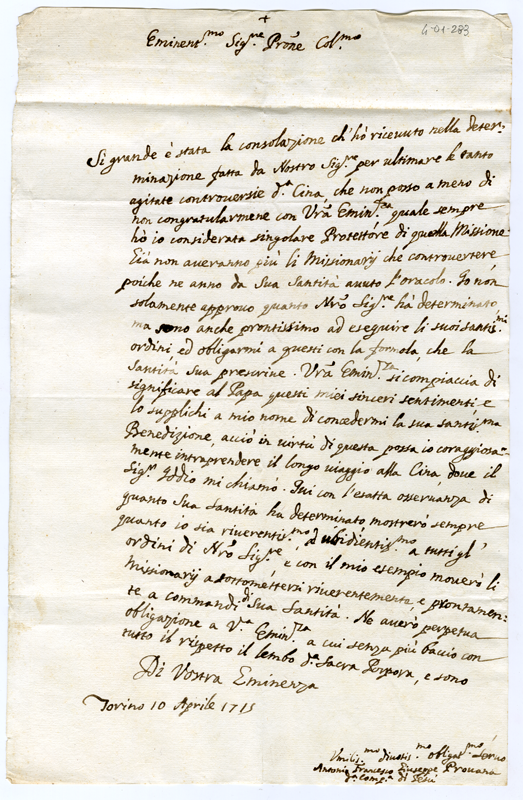 +
4-01-283
Eminent.mo Sig.re Prône Col.mo
Si grande è stata la consolazione ch'hò ricevuto nella deter-
minazione fatta da Nostro Sig.re per ultimare le tanto
agitate controversie d.a Cina, che non posso a meno di
non congratularmene con Vrã Emin.za quale sempre
hò io considerata singolare Protettóre di quella Missione
Già non averanno più li Missionarij che controvertere
poiche ne anno da Sua Santità avuto l'oracolo. Io non
solamente approvo quanto Nrõ Sig.re hà determinato
ma sono anche prontissimo ad eseguire li suoi santis.mi
ordini ed obligarmi a questi con la formola che la
Santità Sua prescrive. Vrã Emin.za si compiaccia di
significare al Papa questi miei sinceri sentimenti, e
lo supplichi a mio nome di concedermi la sua santis.ma
Benedizione, acciò in virtù di questa possa io coraggiosa-
mente intraprendere il longo viaggio alla Cina, dove il
Sig.re Iddio mi chiamò. Qui con l'esatta osservanza di
quanto Sua Santità ha determinato, mostrerò sempre
quanto io sia riverentis.mo, ed ubidientis.mo a tutti gl'
ordini di Nrõ Sig.re, e con il mio esempio moverò li
Missionarij a sottomettersi riverentemente, e prontamen-
te a commandi di Sua Santità. Ne averò perpetua
obligazione a V.a Emin.za, a cui senza più bacio con
tutto il rispetto il lembo d.a Sacra Porpora, e sono
Di Vostra Eminenza
Torino 10 Aprile 1715
Vmilis.mo divotis.mo obligat.mo Servo
Antonio Francesco Giuseppe Provana
d.a Comp.a di Gesù